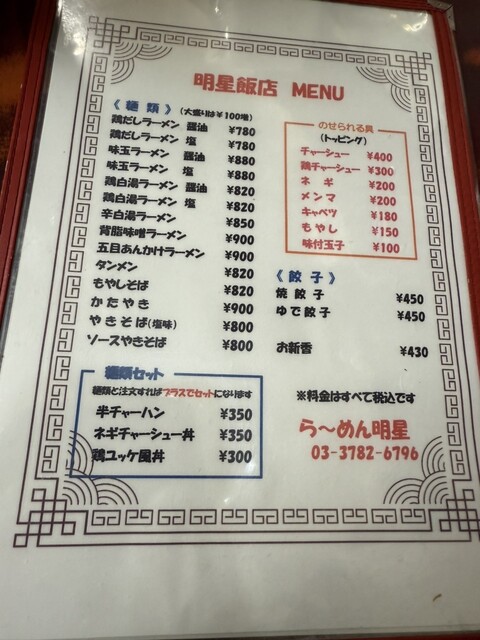 明星飯店 MENU
《 麺 類 》(大盛りは¥100増)
鶏だしラーメン 醤油 ¥780
鶏だしラーメン 塩 ¥780
味玉ラーメン 醤油 ¥880
味玉ラーメン 塩 ¥880
鶏白湯ラーメン 醤油 ¥820
鶏白湯ラーメン 塩 ¥820
辛白湯ラーメン ¥850
背脂味噌ラーメン ¥900
五目あんかけラーメン ¥900
タンメン ¥820
もやしそば ¥820
かたやき ¥900
やきそば(塩味) ¥800
ソースやきそば ¥800
麺類セット
麺類と注文すればプラスでセットになります
半チャーハン ¥350
ネギチャーシュー丼 ¥350
鶏ユッケ風丼 ¥300
のせられる具
(トッピング)
チャーシュー ¥400
鶏チャーシュー ¥300
ネギ ¥200
メンマ ¥200
キャベツ ¥180
もやし ¥150
味付玉子 ¥100
《 餃 子 》
焼餃子 ¥450
ゆで餃子 ¥450
お新香 ¥430
※料金はすべて税込です
ら～めん明星
03-3782-6796